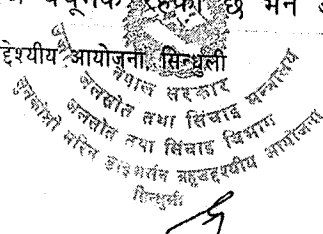 छ भने
द्देश्यीय आयोजना, सिन्धुली
नेपाल सरकार
जलस्रोत तथा सिंचाइ मन्त्रालय
जलस्रोत तथा सिंचाइ विभाग
सुनकोशी मरिन डाइभर्सन बहुउद्देश्यीय आयोजना
सिन्धुली